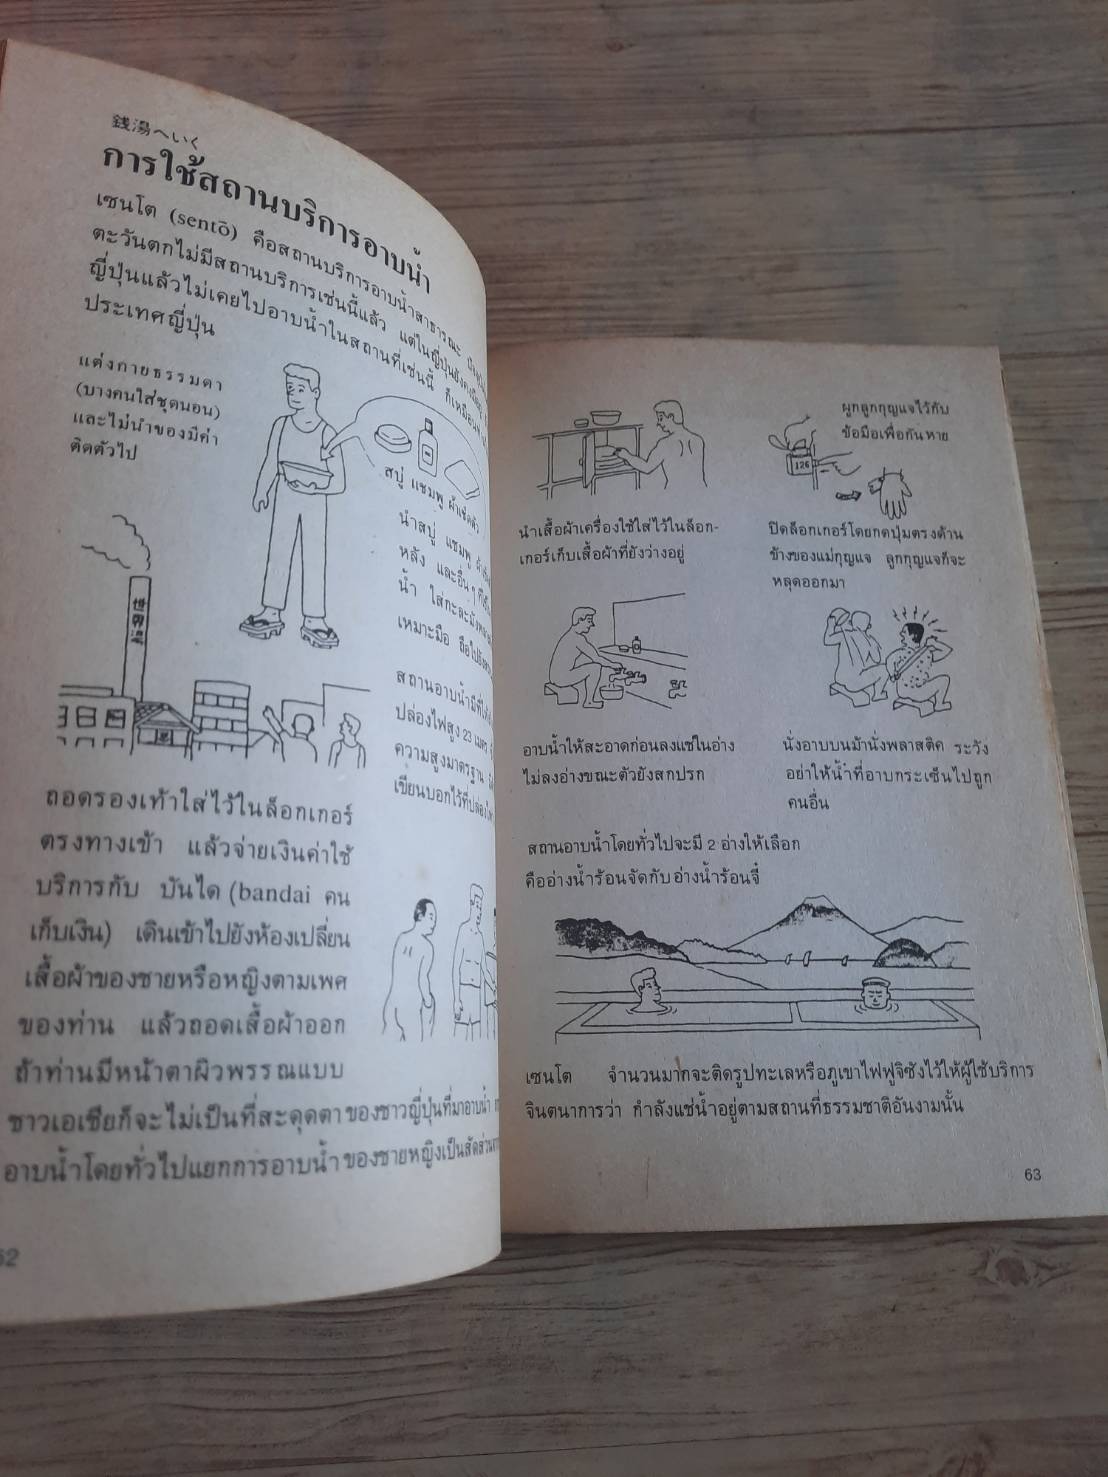 銭湯へいく
การใช้สถานบริการอาบน้ำ
เซนโต (sentō) คือสถานบริการอาบน้ำสาธารณะ
ตะวันตกไม่มีสถานบริการเช่นนี้แล้ว แต่ในญี่ปุ่นยังคง
ญี่ปุ่นแล้วไม่เคยไปอาบน้ำในสถานที่เช่นนี้
ประเทศญี่ปุ่น
แต่งกายธรรมดา
(บางคนใส่ชุดนอน)
และไม่นำของมีค่า
ติดตัวไป
สบู่ แชมพู ผ้าเช็ดตัว
นำสบู่ แชมพู
หลัง และอื่นๆ
น้ำ ใส่กะละมัง
เหมาะมือ
世界湯
สถานอาบน้ำมีที่
ปล่องไฟสูง 23 เมตร
ความสูงมาตรฐาน
เขียนบอกไว้ที่ปล่อง
ถอดรองเท้าใส่ไว้ในล็อกเกอร์
ตรงทางเข้า แล้วจ่ายเงินค่าใช้
บริการกับ บันได (bandai คน
เก็บเงิน) เดินเข้าไปยังห้องเปลี่ยน
เสื้อผ้าของชายหรือหญิงตามเพศ
ของท่าน แล้วถอดเสื้อผ้าออก
ถ้าท่านมีหน้าตาผิวพรรณแบบ
ชาวเอเชียก็จะไม่เป็นที่สะดุดตาของชาวญี่ปุ่นที่มาอาบน้ำ
อาบน้ำโดยทั่วไปแยกการอาบน้ำของชายหญิงเป็นสัดส่วน
62
ผูกลูกกุญแจไว้กับ
ข้อมือเพื่อกันหาย
126
นำเสื้อผ้าเครื่องใช้ใส่ไว้ในล็อก-
เกอร์เก็บเสื้อผ้าที่ยังว่างอยู่
ปิดล็อกเกอร์โดยกดปุ่มตรงด้าน
ข้างของแม่กุญแจ ลูกกุญแจก็จะ
หลุดออกมา
อาบน้ำให้สะอาดก่อนลงแช่ในอ่าง
ไม่ลงอ่างขณะตัวยังสกปรก
นั่งอาบบนม้านั่งพลาสติค ระวัง
อย่าให้น้ำที่อาบกระเซ็นไปถูก
คนอื่น
สถานอาบน้ำโดยทั่วไปจะมี 2 อ่างให้เลือก
คืออ่างน้ำร้อนจัดกับอ่างน้ำร้อนจี๋
เซนโต จำนวนมากจะติดรูปทะเลหรือภูเขาไฟฟูจิซังไว้ให้ผู้ใช้บริการ
จินตนาการว่า กำลังแช่น้ำอยู่ตามสถานที่ธรรมชาติอันงามนั้น
63